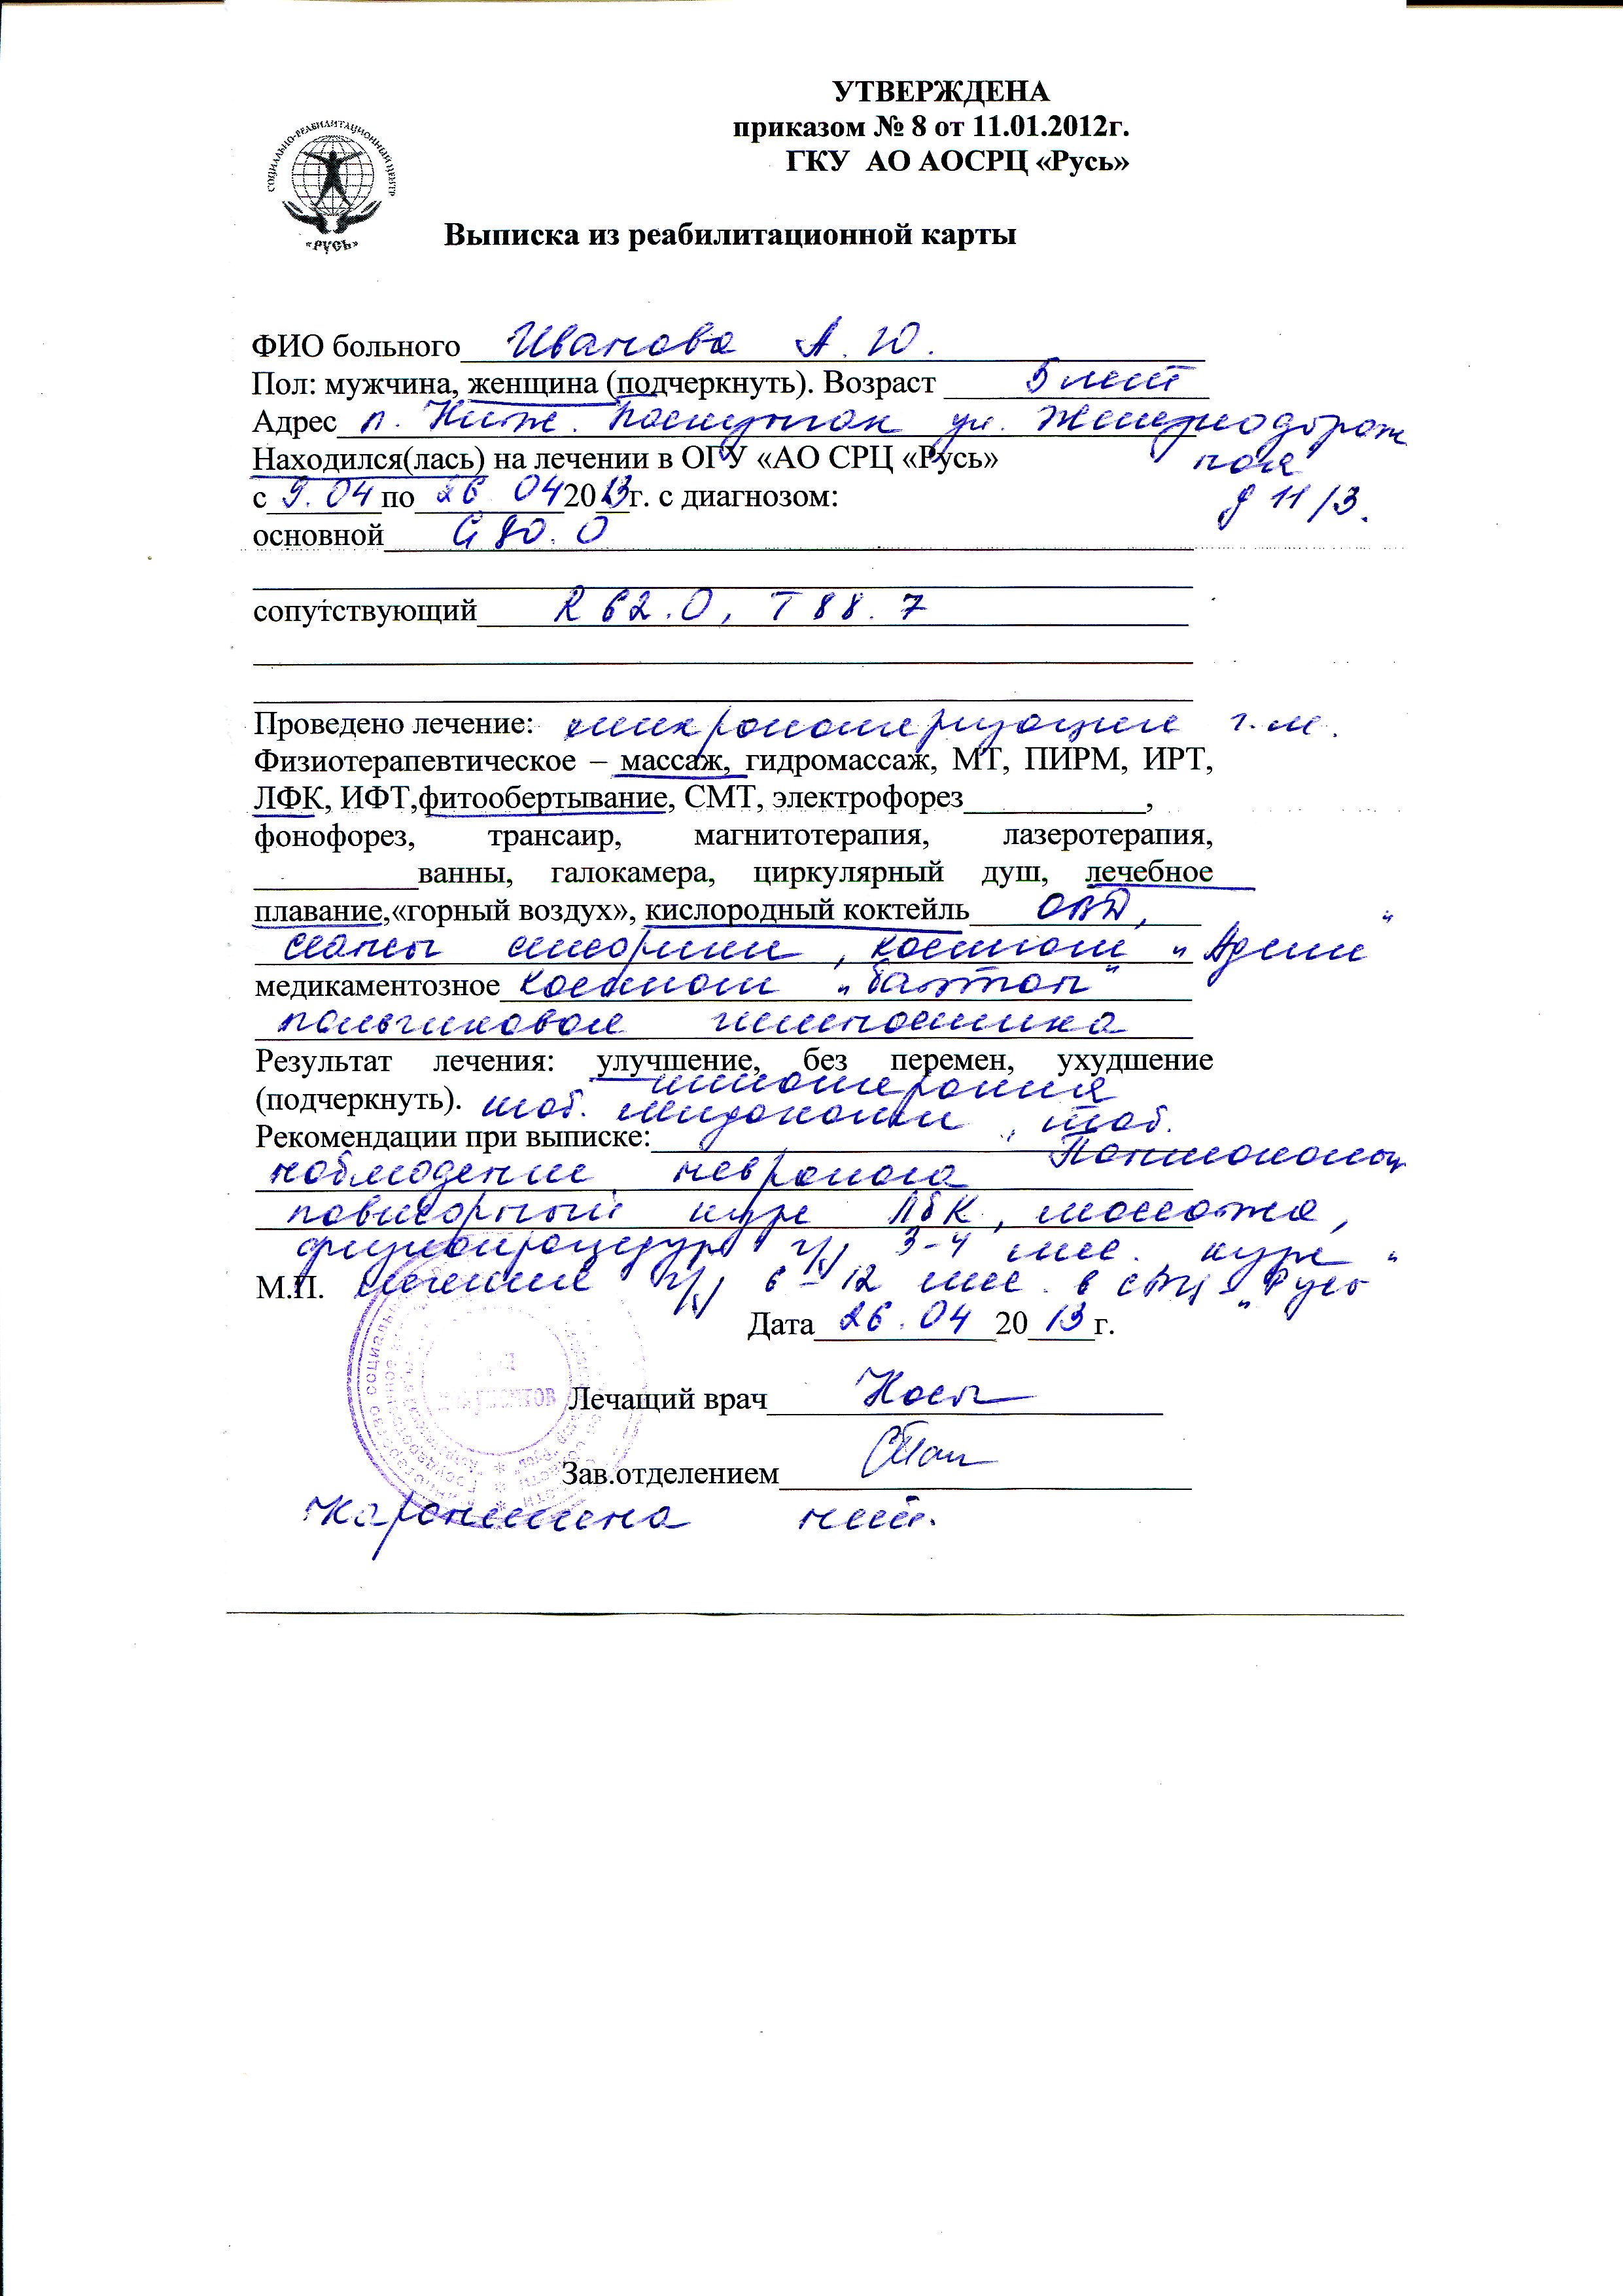 УТВЕРЖДЕНА
приказом № 8 от 11.01.2012г.
ГКУ АО АОСРЦ «Русь»
СОЦИАЛЬНО-РЕАБИЛИТАЦИОННЫЙ ЦЕНТР
«РУСЬ»
Выписка из реабилитационной карты
ФИО больного Иванова А. Ю.
Пол: мужчина, женщина (подчеркнуть). Возраст 5 лет
Адрес п. Ниж. ул. Железнодорож
Находился(лась) на лечении в ОГУ «АО СРЦ «Русь» ная
с 9.04 по 26 04 2013 г. с диагнозом: д 11/3.
основной G 80.0
сопутствующий R 62.0, T 88.7
Проведено лечение: микрополяризация г.м.
Физиотерапевтическое – массаж, гидромассаж, МТ, ПИРМ, ИРТ,
ЛФК, ИФТ,фитообертывание, СМТ, электрофорез____________,
фонофорез, трансаир, магнитотерапия, лазеротерапия,
___________ванны, галокамера, циркулярный душ, лечебное
плавание,«горный воздух», кислородный коктейль
костюм "Адели"
медикаментозное костюм
пальчиковая гимнастика
Результат лечения: улучшение, без перемен, ухудшение
(подчеркнуть). таб. , таб.
Рекомендации при выписке:
наблюдение невролога
повторный курс ЛФК, массажа,
физиопроцедур ч/з 3-4 мес. курс
М.П. лечения ч/з 6-12 мес. в СРЦ "Русь"
Дата 26.04 2013 г.
Лечащий врач
Зав.отделением
Карантина нет.